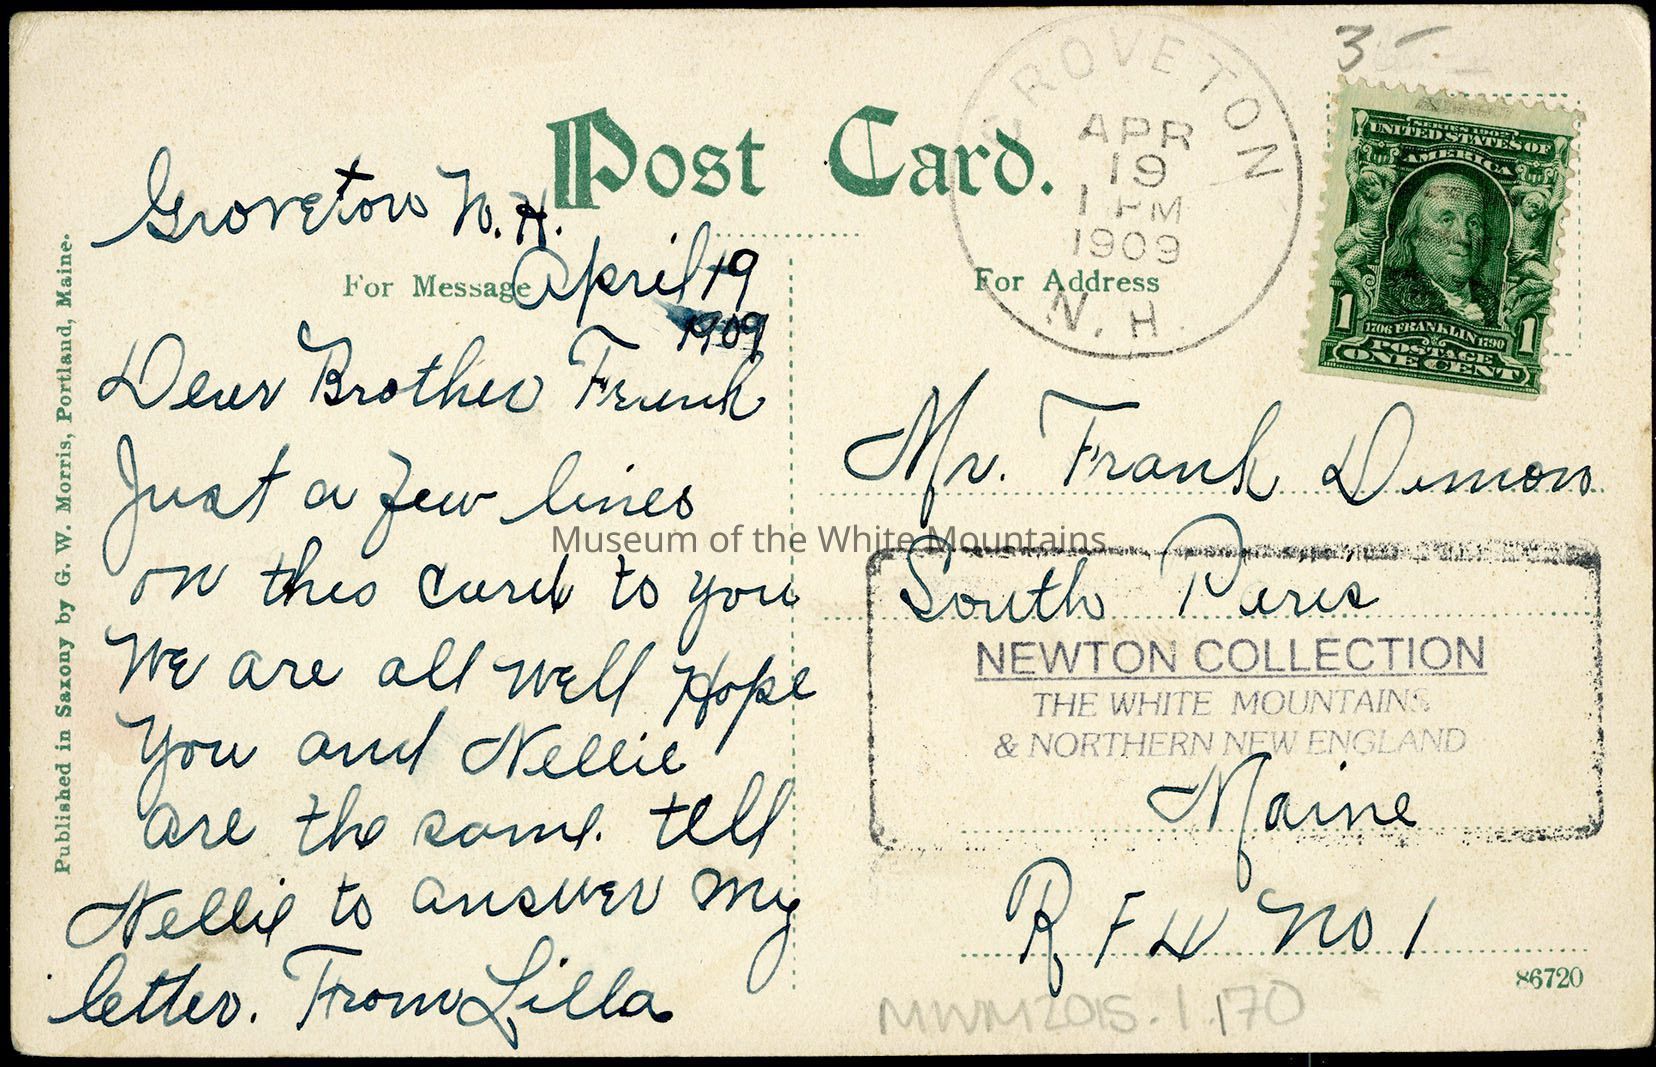 Post Card.
Groveton N.H.
For Message
April 19
1909
Dear Brother Frank
Just a few lines
on this card to you
We are all well Hope
You and Nellie
are the same. tell
Nellie to answer my
letter. From Lilla
Published in Saxony by G. W. Morris, Portland, Maine.
GROVETON
APR
19
1 PM
1909
N. H.
For Address
3
SERIES 1902
UNITED STATES OF
AMERICA
1706 FRANKLIN 1790
POSTAGE
1 ONE CENT 1
Mr. Frank Dimon
South Paris
Maine
R F D No 1
NEWTON COLLECTION
THE WHITE MOUNTAINS
& NORTHERN NEW ENGLAND
86720
MWM2015.1.170
Museum of the White Mountains